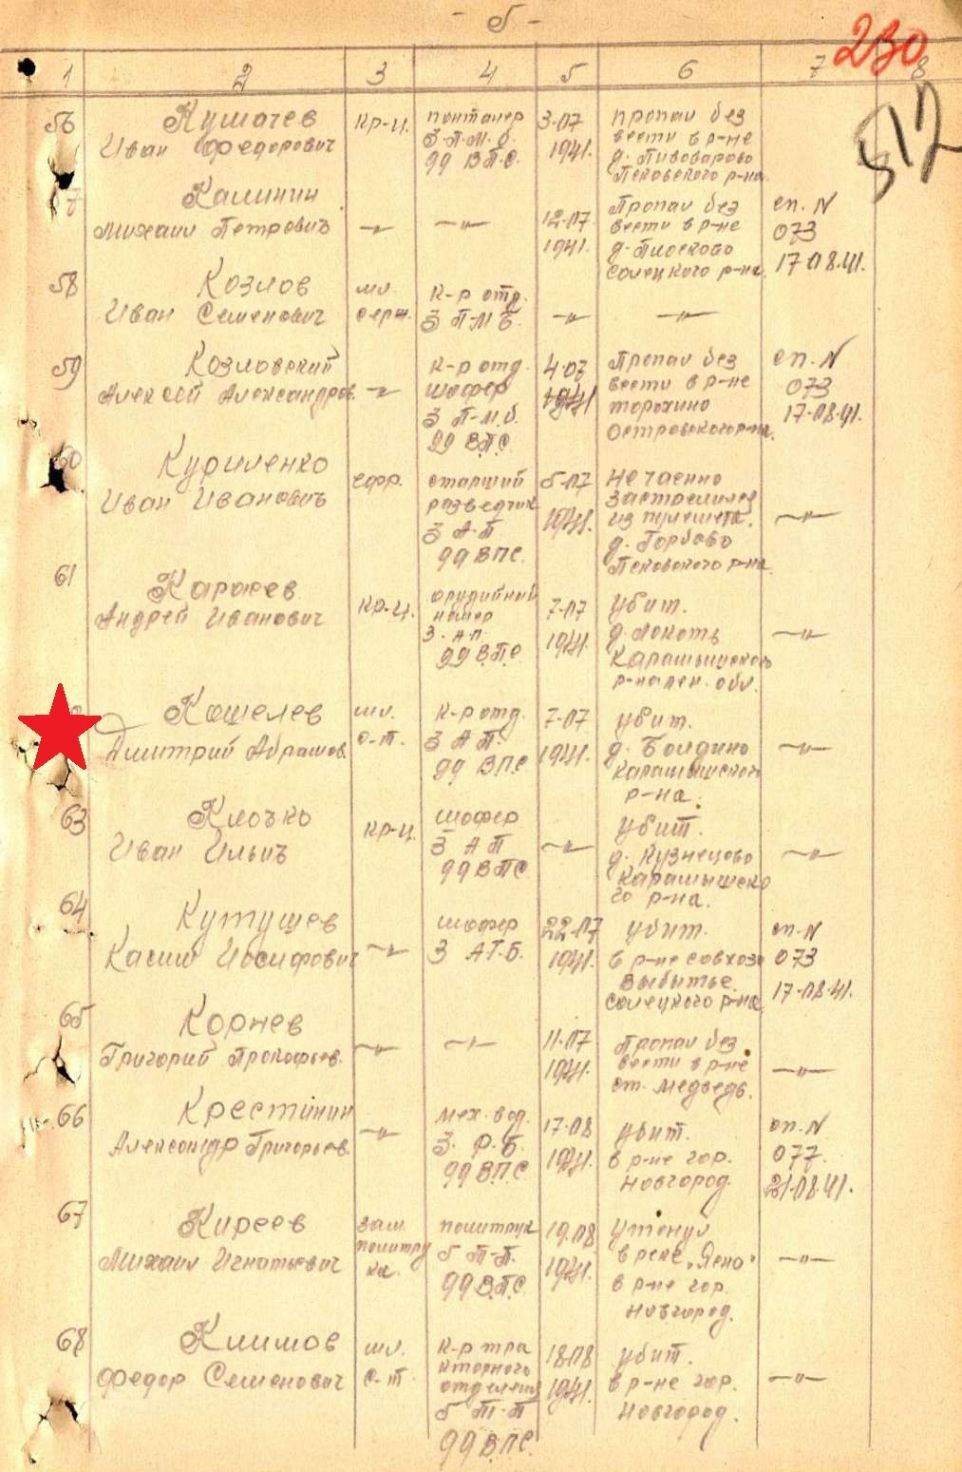 - 5 -
230
1 2 3 4 5 6 7 8
512
56 Кушачев кр-ц. понтанер 3-07 пропал без
Иван Федорович 3 П.М.б. 1941. вести в р-не
99 В.П.С. д. Пивоварово
Псковского р-на.
57 Калинин Пропал без сп. N
Михаил Петрович —"— —"— 12-07 вести в р-не 073
1941. д. Плосково 17-08.41.
солецкого р-на.
58 Козлов мл. к-р отд.
Иван Семенович серж. 3 П.М.Б. —"— —"—
59 Козловский к-р отд. 4-07 Пропал без сп. N
Алексей Александров. —"— шофер 1941 вести в р-не 073
3 П.М.б. торохино 17-08.41.
99 В.П.С. Островского р-на.
60 Куриленко ефр. старший 5-07 Нечаенно
Иван Иванович разведчик 1941. застрелился
3 А.П из пулемета. —"—
99 ВПС. д. Горбово
Псковского р-на.
61 Карасев орудийный
Андрей Иванович кр-ц. номер 7-07 убит.
3. А.П. 1941. д. Локоть —"—
99 В.П.С Карамышского
р-на лен. обл.
Кошелев мл. к-р отд. 7-07 убит.
Дмитрий Абрамов. с-т. 3 А П. 1941. д. Болдино —"—
99 ВПС Карамышского
р-на.
63 Клочко шофер убит.
Иван Ильич кр-ц. 3 А П —"— д. Кузнецово —"—
99 ВПС Карамышско
го р-на.
64 Кутушев шофер 22-07 убит. сп. N
Касим Иосифович —"— 3 А.Т.Б. 1941. в р-не совхоза 073
Выбитье. 17-08.41.
солецкого р-на
65 Корнев 11.07 Пропал без
Григорий Прокофьев. —"— —"— 1941. вести в р-не —"—
ст. Медведь.
66 Крестинин мех. вод. 17-08 убит. сп. N
Александр Григорьев. —"— 3. Р.Б. 1941. в р-не гор. 077.
99 ВПС Новгород. 21.08.41.
67 Киреев зам. политрук 19.08 Утонул
Михаил Игнатьевич политру 5 Т.П. 1941. в реке „Ясно" —"—
ка. 99 В.П.С в р-не гор.
Новгород.
68 Климов мл. к-р тра 18.08 убит.
Федор Семенович с-т. кторного 1941. в р-не гор. —"—
отделения Новгород.
5 Т-П
99 В.П.С.